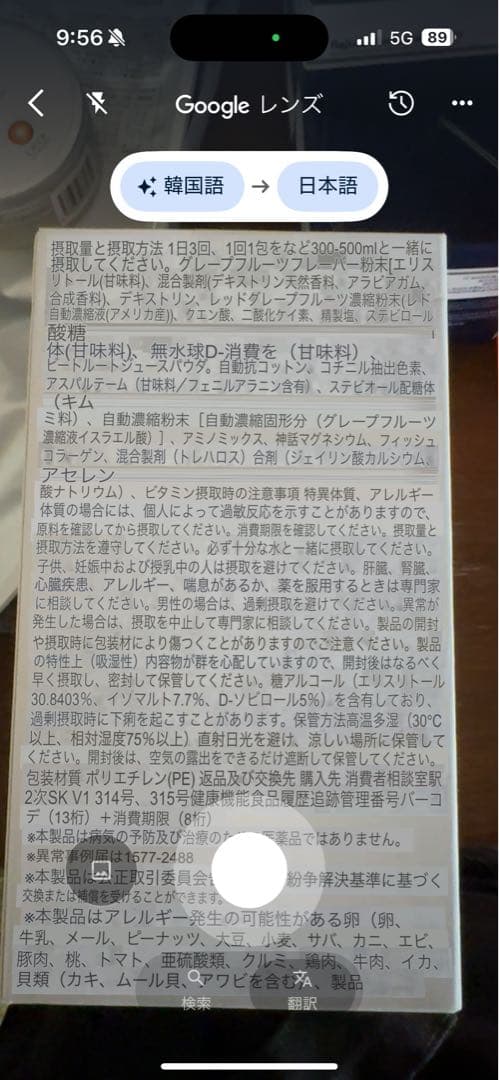 9:56
5G
89
Google レンズ
韓国語 → 日本語
摂取量と摂取方法 1日3回、1回1包をなど300-500mlと一緒に
摂取してください。グレープフルーツフレーバー粉末[エリス
リトール(甘味料)、混合製剤(デキストリン天然香料、アラビアガム、
合成香料)、デキストリン、レッドグレープフルーツ濃縮粉末(レド
自動濃縮液(アメリカ産))、クエン酸、二酸化ケイ素、精製塩、ステビロール
酸糖
体(甘味料)、無水球D-消費を（甘味料）、
ビートルートジュースパウダ。自動抗コットン、コチニル抽出色素、
アスパルテーム（甘味料／フェニルアラニン含有）、ステビオール配糖体
（キム
ミ料）、自動濃縮粉末［自動濃縮固形分（グレープフルーツ
濃縮液イスラエル酸）］、アミノミックス、神話マグネシウム、フィッシュ
コラーゲン、混合製剤（トレハロス）合剤（ジェイリン酸カルシウム、
アセレン
酸ナトリウム）、ビタミン摂取時の注意事項 特異体質、アレルギー
体質の場合には、個人によって過敏反応を示すことがありますので、
原料を確認してから摂取してください。消費期限を確認してください。摂取量と
摂取方法を遵守してください。必ず十分な水と一緒に摂取してください。
子供、妊娠中および授乳中の人は摂取を避けてください。肝臓、腎臓、
心臓疾患、アレルギー、喘息があるか、薬を服用するときは専門家
に相談してください。男性の場合は、過剰摂取を避けてください。異常が
発生した場合は、摂取を中止して専門家に相談してください。製品の開封
や摂取時に包装材により傷つくことがありますのでご注意ください。製品
の特性上（吸湿性）内容物が群を心配していますので、開封後はなるべく
早く摂取し、密封して保管してください。糖アルコール（エリスリトール
30.8403%、イソマルト7.7%、D-ソビロール5%）を含有しており、
過剰摂取時に下痢を起こすことがあります。保管方法高温多湿（30℃
以上、相対湿度75%以上）直射日光を避け、涼しい場所に保管して
ください。開封後は、空気の露出をできるだけ遮断して保管してください。
包装材質 ポリエチレン(PE) 返品及び交換先 購入先 消費者相談室駅
2次SK V1 314号、315号健康機能食品履歴追跡管理番号バーコ
デ（13桁）＋消費期限（8桁）
※本製品は病気の予防及び治療のた 医薬品ではありません。
※異常事例届は1577-2488
※本製品は公正取引委員会 紛争解決基準に基づく
交換または補償を受けることができます。
※本製品はアレルギー発生の可能性がある卵（卵、
牛乳、メール、ピーナッツ、大豆、小麦、サバ、カニ、エビ、
豚肉、桃、トマト、亜硫酸類、クルミ、鶏肉、牛肉、イカ、
貝類（カキ、ムール貝、アワビを含む 、製品
検索
翻訳